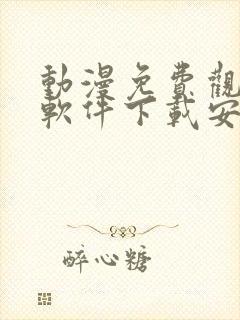 動漫免費觀
軟件下載安
醉心糖